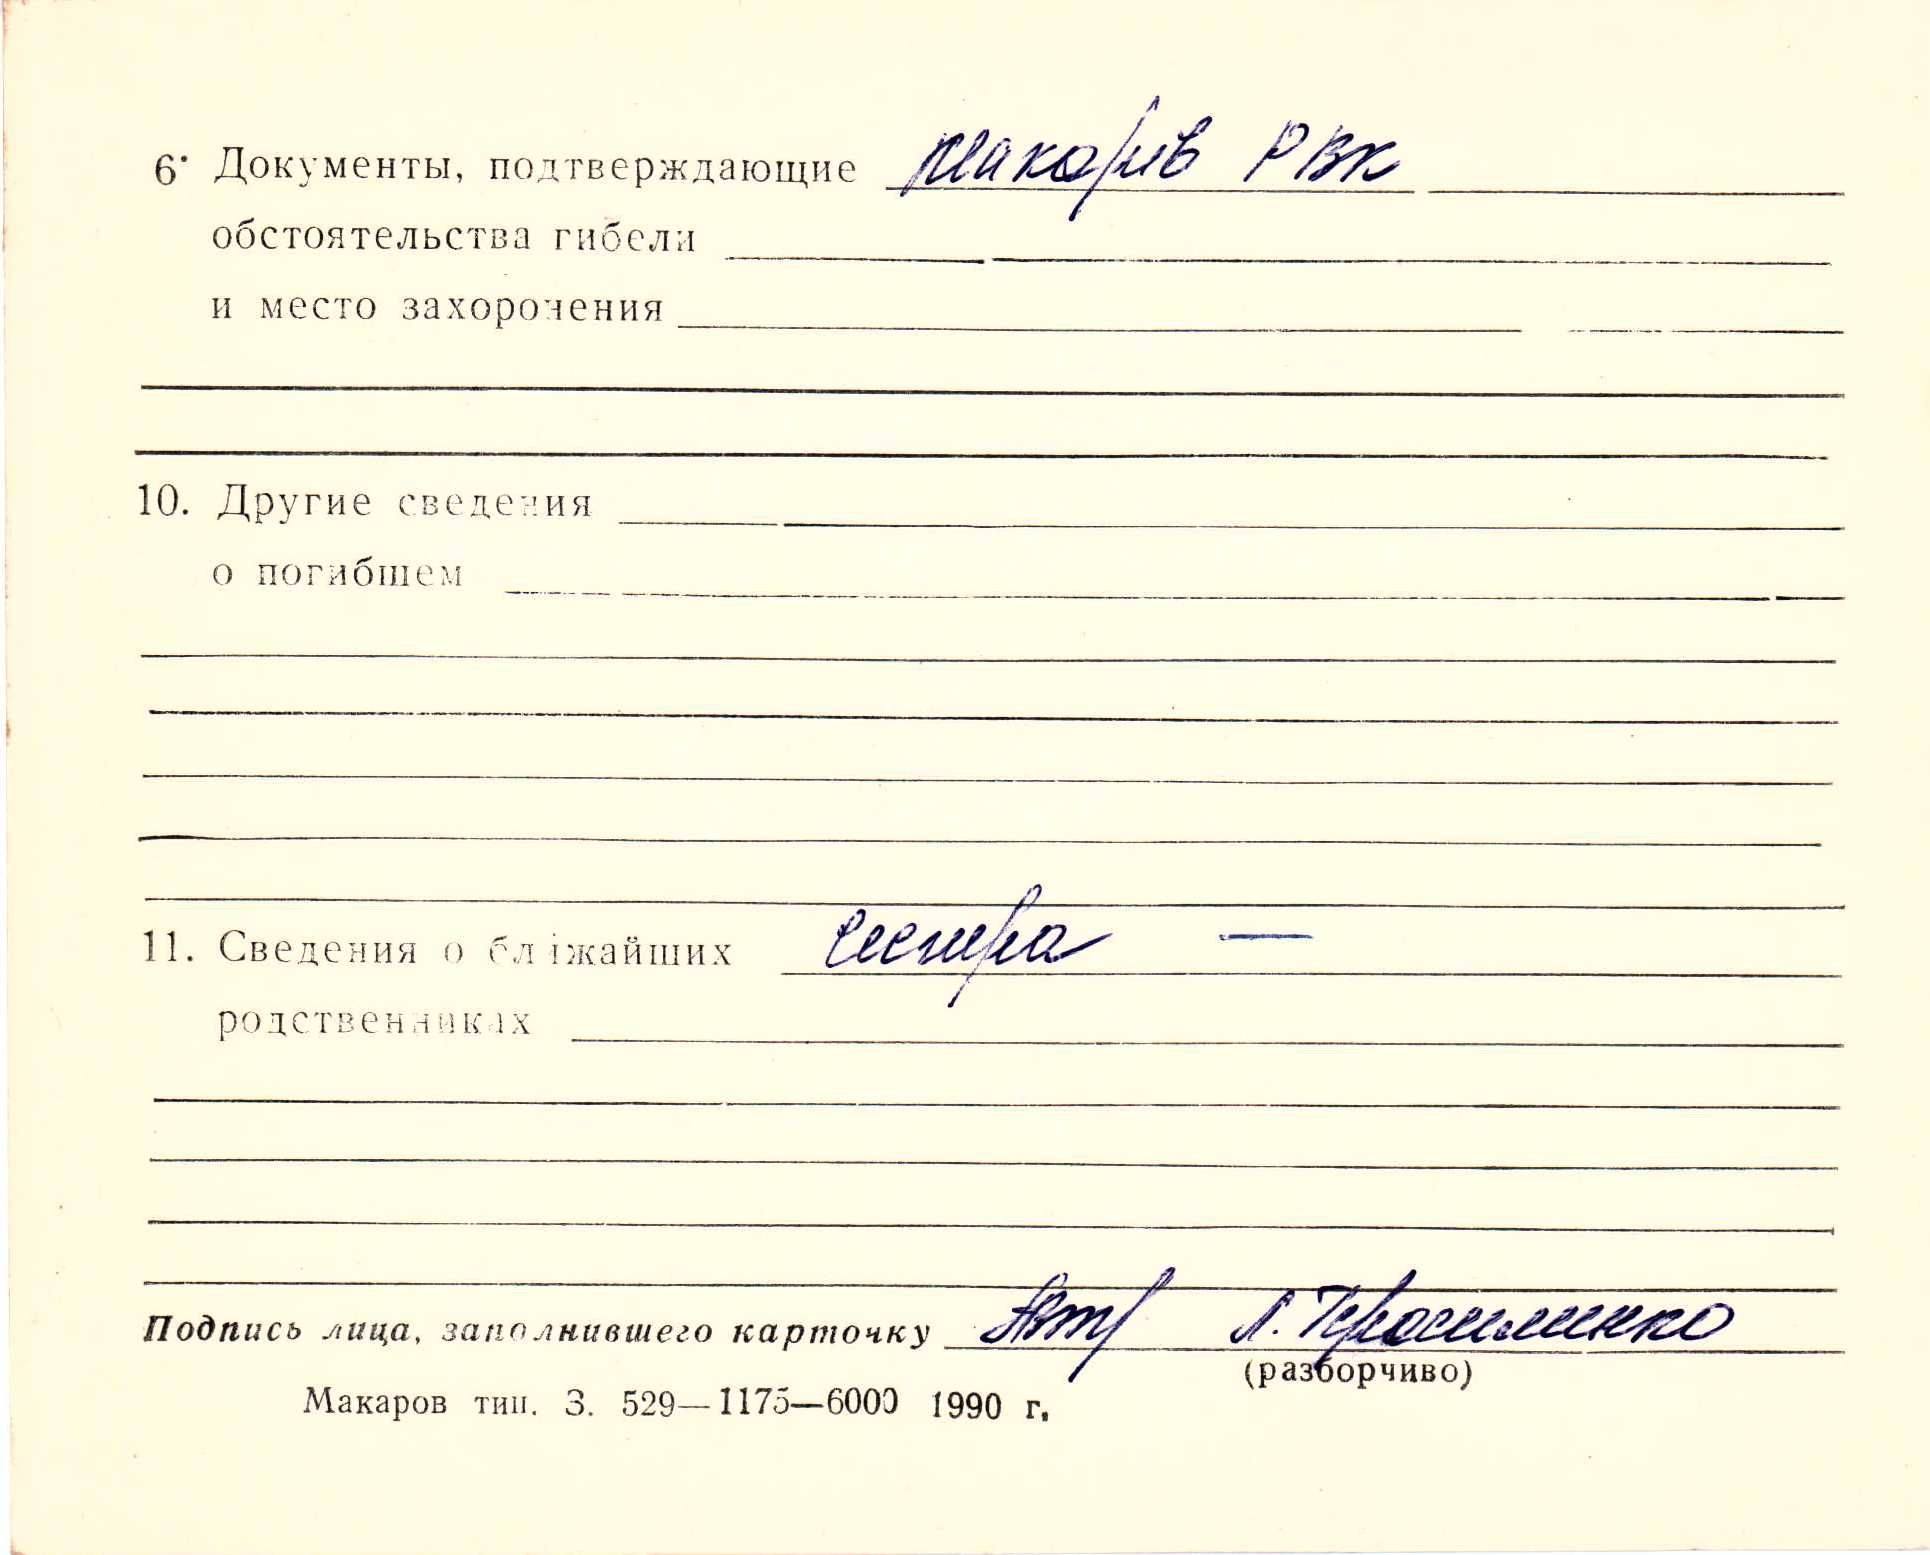 6. Документы, подтверждающие Макарів РВК
обстоятельства гибели
и место захоронения
10. Другие сведения
о погибшем
11. Сведения о ближайших сестра —
родственниках
Подпись лица, заполнившего карточку Л. Герасименко
(разборчиво)
Макаров тип. З. 529—1175—6000 1990 г.